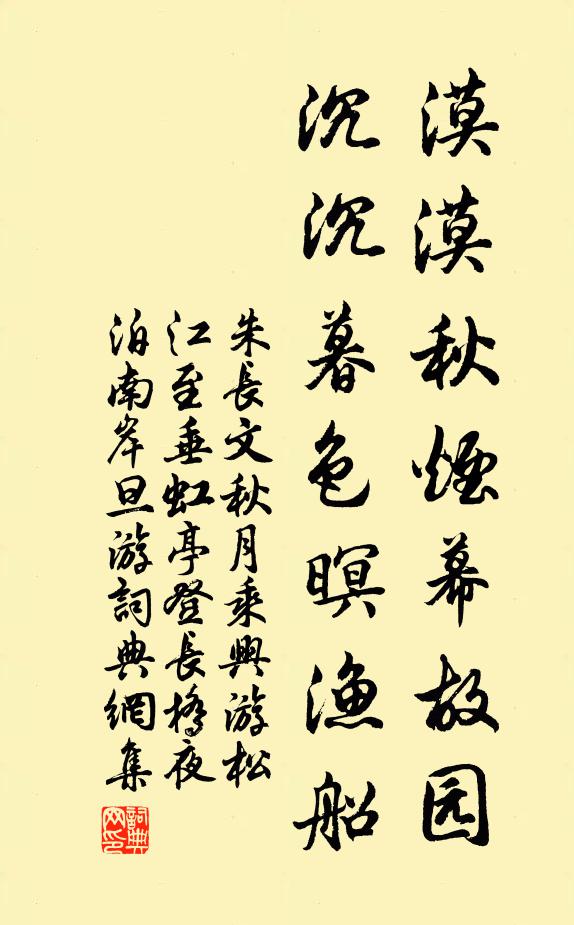 漠漠秋煙幕故园
沉沉暮色暝渔船
朱長文秋月乘興游松
江至垂虹亭登長橋夜
泊南岸旦游詞典網集
詞典
网印